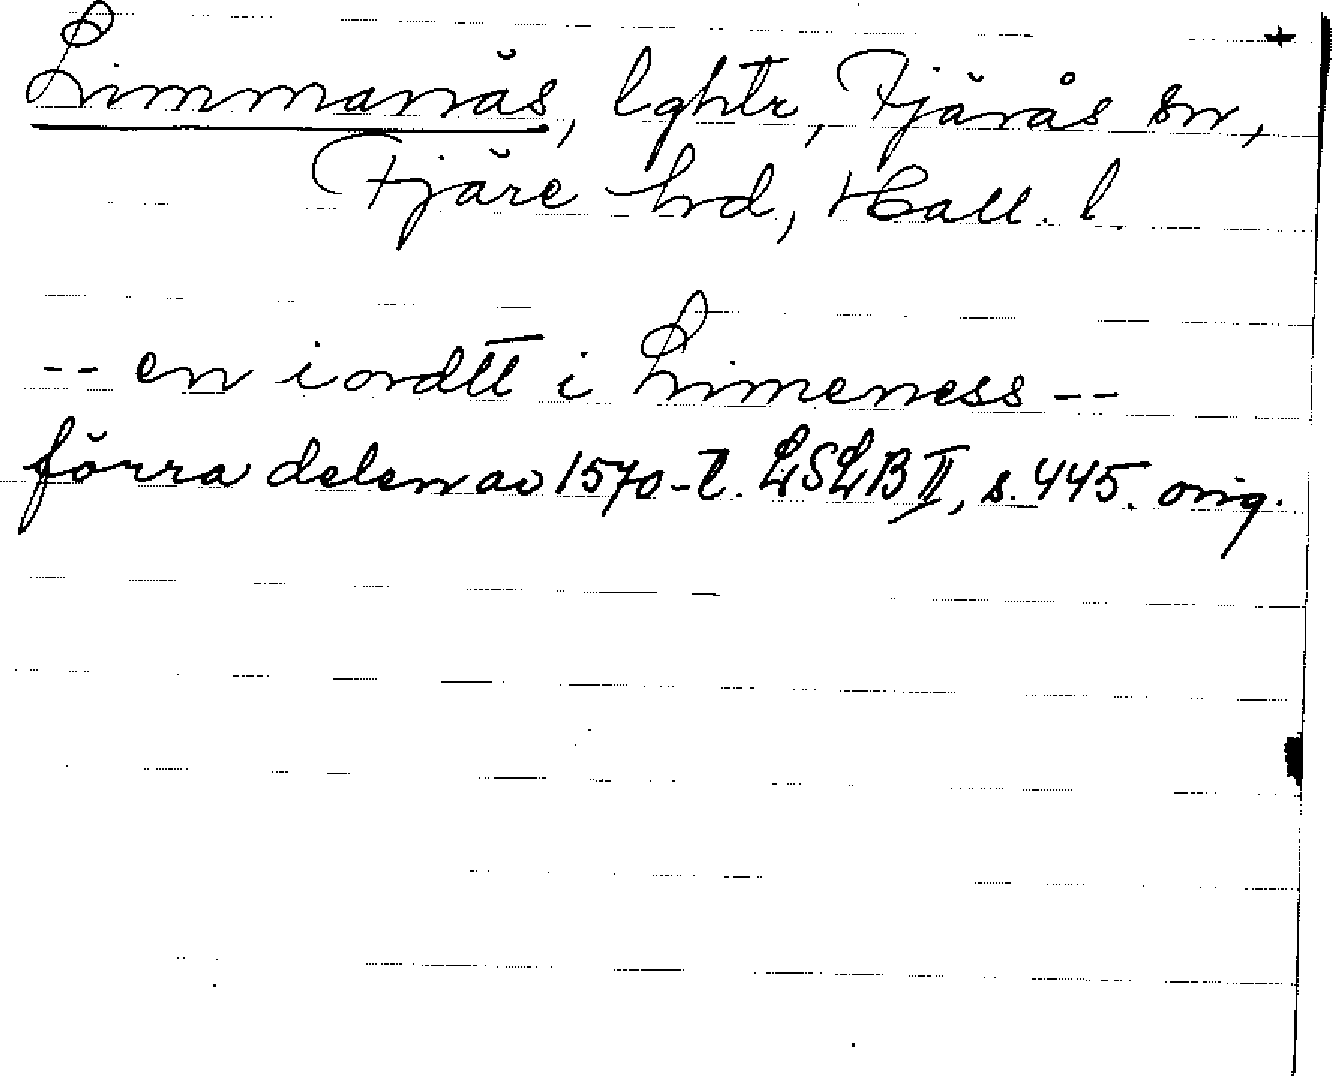 +
Limmanäs, lghtr, Fjärås sn,
Fjäre hd, Hall. l.
-- en iordtt i Limeness --
förra delen av 1570-t. LSLB II, s. 445. orig.